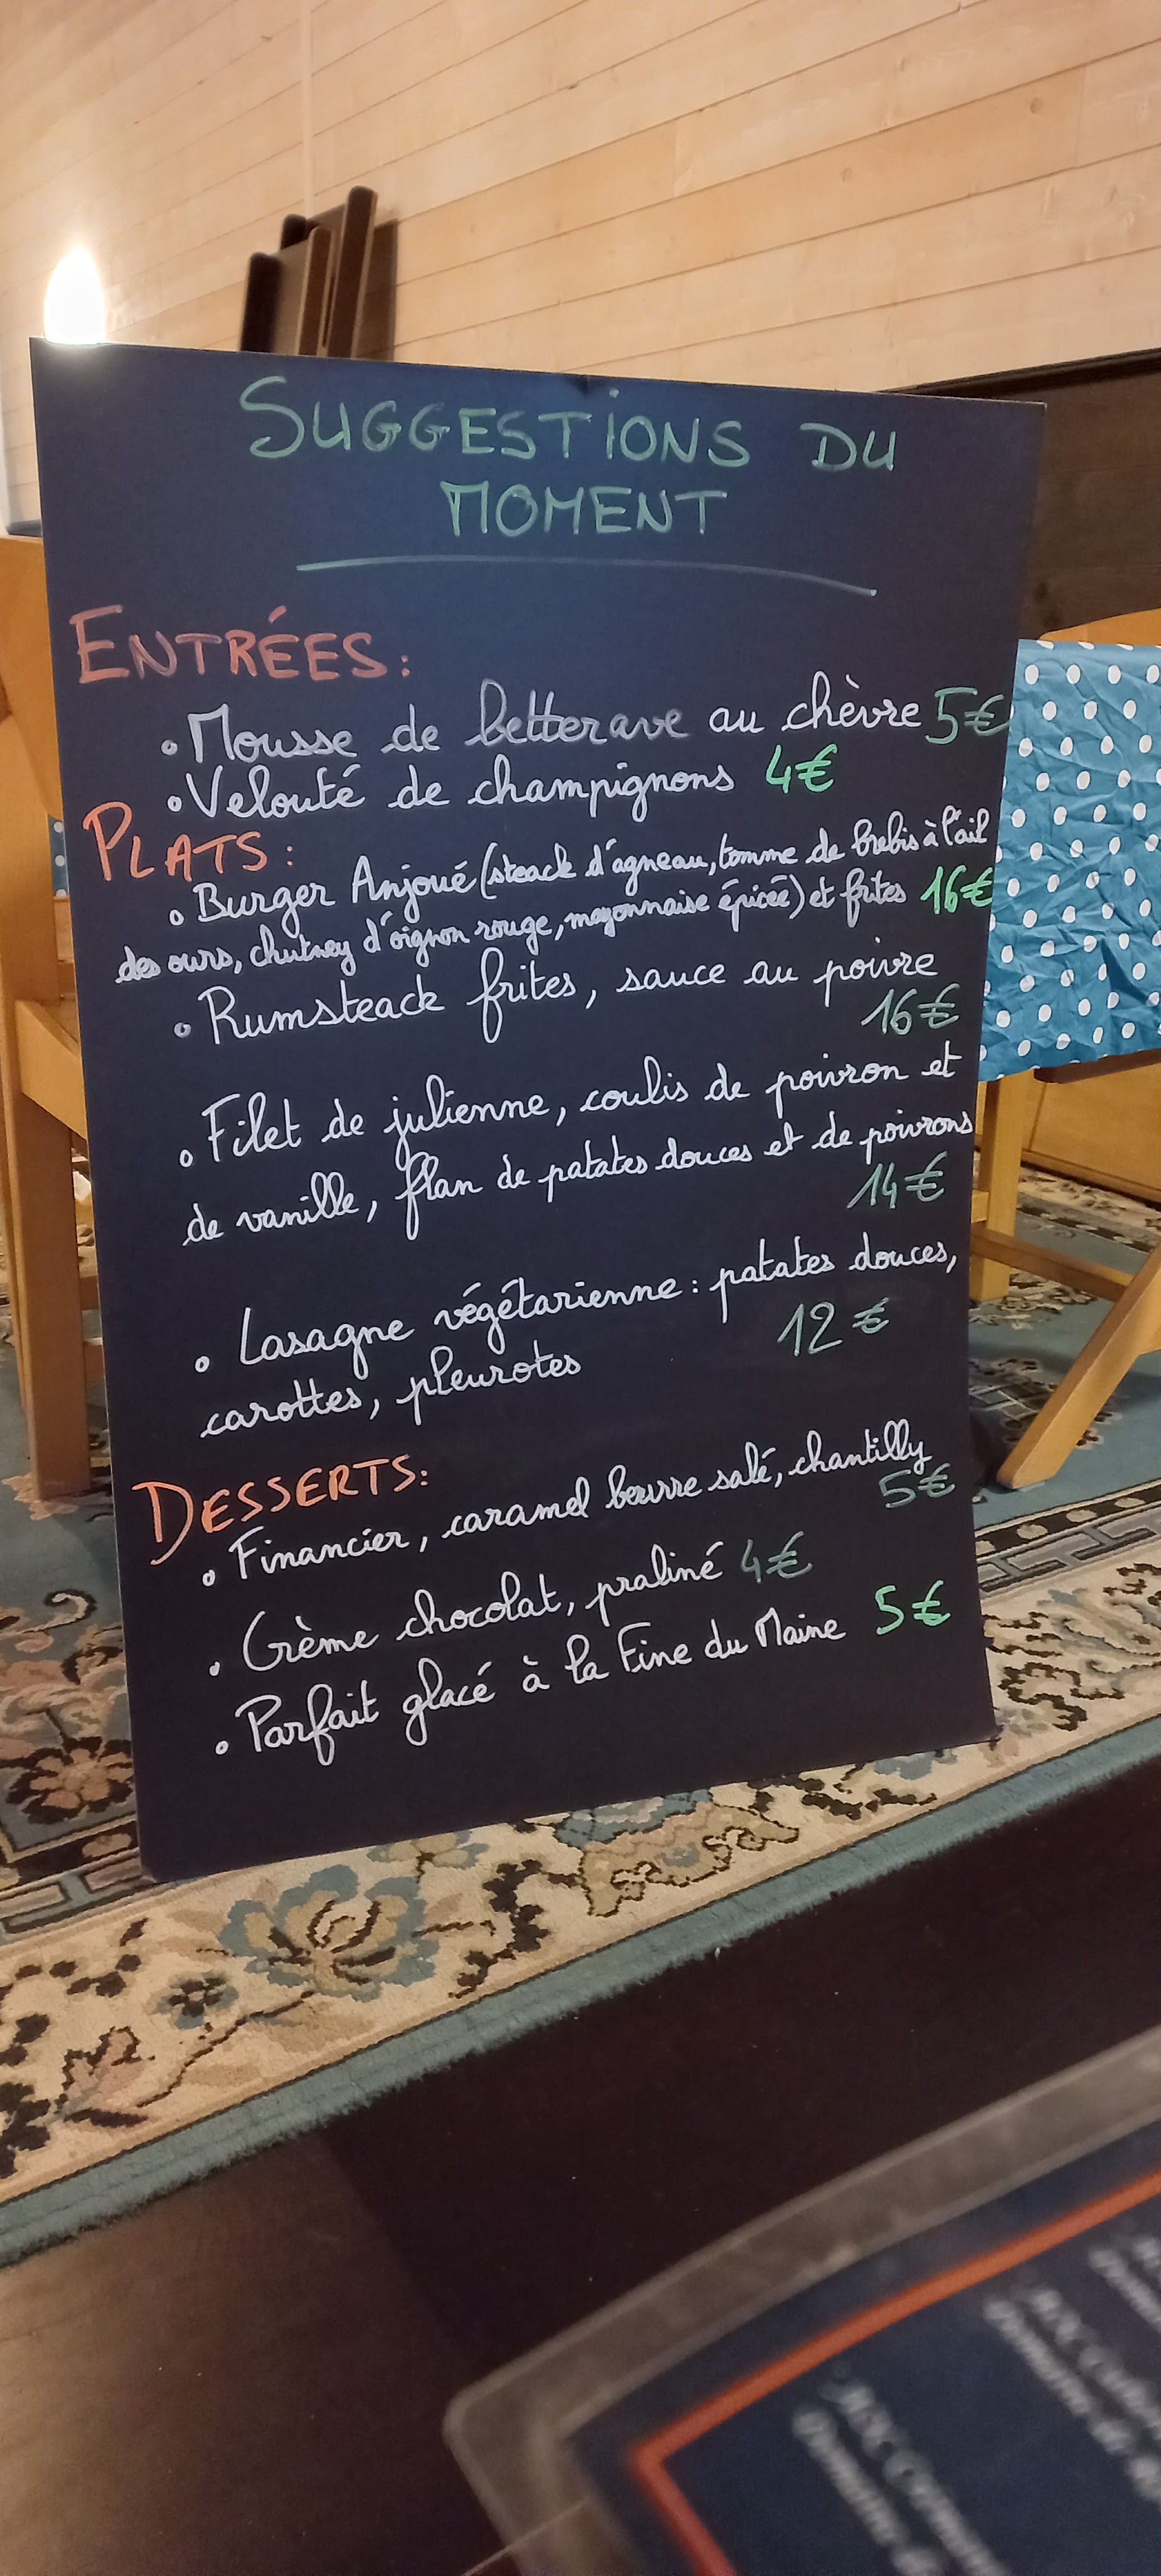 SUGGESTIONS DU
MOMENT
ENTRÉES:
• Mousse de betterave au chèvre 5€
• Velouté de champignons 4€
PLATS:
• Burger Anjoué (steack d'agneau, tomme de brebis à l'ail
des ours, chutney d'oignon rouge, mayonnaise épicée) et frites 16€
• Rumsteack frites, sauce au poivre
16€
• Filet de julienne, coulis de poivron et
de vanille, flan de patates douces et de poivrons
14€
• Lasagne végétarienne : patates douces,
carottes, pleurotes 12€
DESSERTS:
• Financier, caramel beurre salé, chantilly
5€
• Crème chocolat, praliné 4€
• Parfait glacé à la Fine du Maine 5€